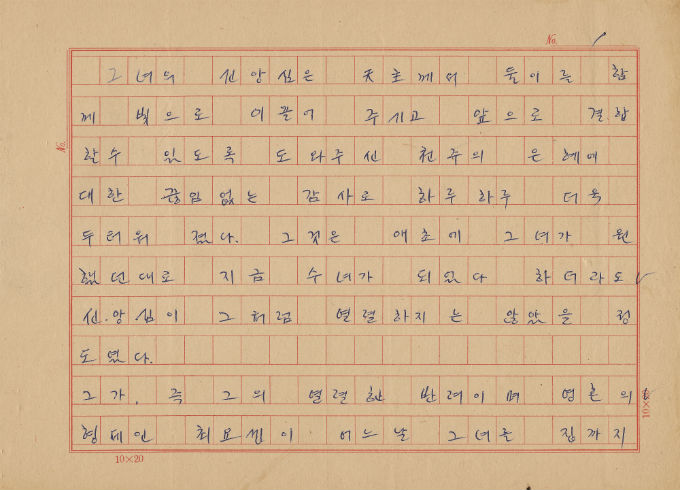 No. 1
No.
그녀의 신앙심은 天主께서 둘이를 함
께 빛으로 이끌어 주시고 앞으로 결합
할수 있도록 도와주신 천주의 은혜에
대한 끊임없는 감사로 하루하루 더욱
두터워 졌다. 그것은 애초에 그녀가 원
했던대로 지금 수녀가 되었다 하더라도
신앙심이 그처럼 열렬하지는 않았을 정
도였다.
그가, 즉 그의 열렬한 반려이며 영혼의
형제인 최요셉이 어느날 그녀를 집까지
10×20